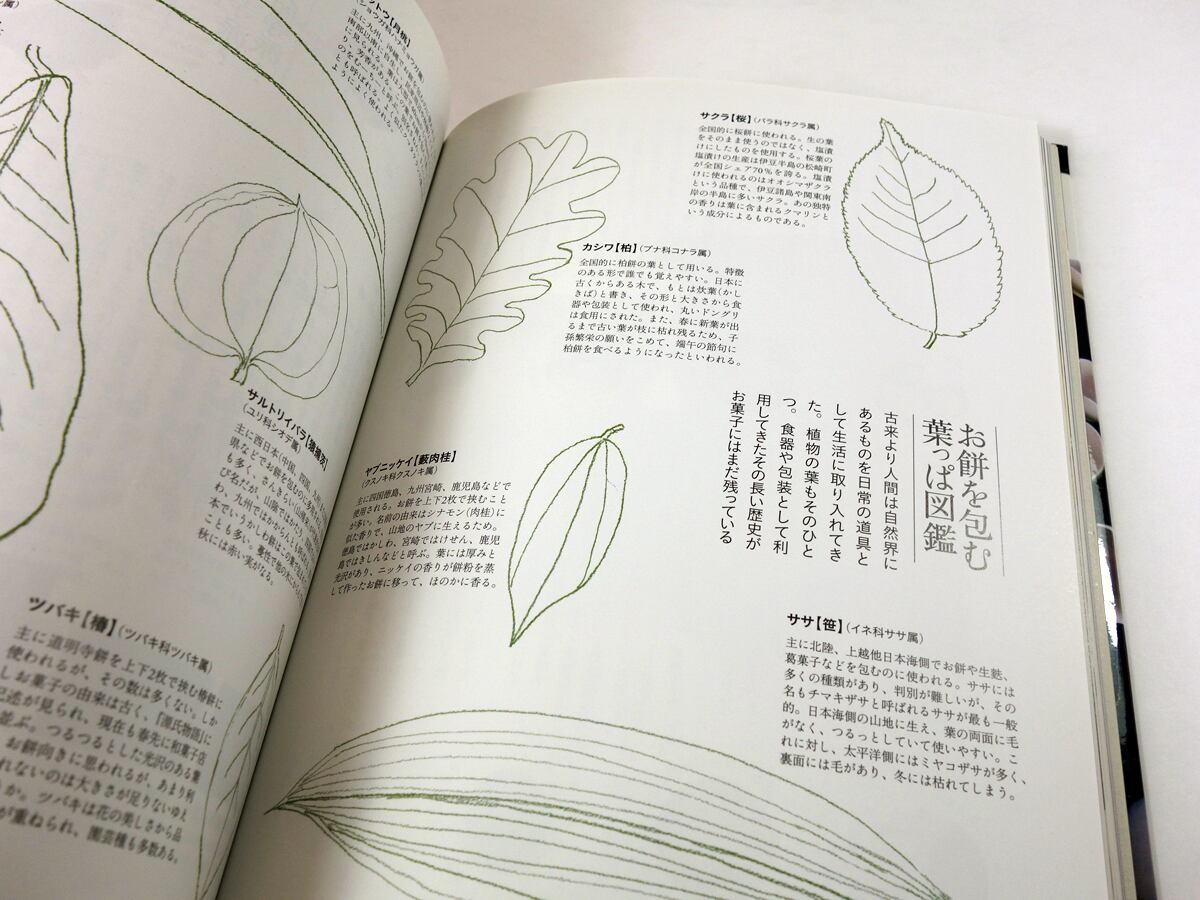 お餅を包む
葉っぱ図鑑
古来より人間は自然界に
あるものを日常の道具と
して生活に取り入れてき
た。植物の葉もそのひと
つ。食器や包装として利
用してきたその長い歴史が
お菓子にはまだ残っている
サクラ【桜】（バラ科サクラ属）
全国的に桜餅に使われる。生の葉
をそのまま使うのではなく、塩漬
けにしたものを使用する。桜葉の
塩漬けの生産は伊豆半島の松崎町
が全国シェア70％を誇る。塩漬
けに使われるのはオオシマザクラ
という品種で、伊豆諸島や関東南
岸の半島に多いサクラ。あの独特
の香りは葉に含まれるクマリンと
いう成分によるものである。
カシワ【柏】（ブナ科コナラ属）
全国的に柏餅の葉として用いる。特徴
のある形で誰でも覚えやすい。日本に
古くからある木で、もとは炊葉（かし
きば）と書き、その形と大きさから食
器や包装として使われ、丸いドングリ
は食用にされた。また、春に新葉が出
るまで古い葉が枝に枯れ残るため、子
孫繁栄の願いをこめて、端午の節句に
柏餅を食べるようになったといわれる。
ヤブニッケイ【藪肉桂】
（クスノキ科クスノキ属）
主に四国徳島、九州宮崎、鹿児島などで
使用される。お餅を上下2枚で挟むこと
が多い。名前の由来はシナモン（肉桂）に
似た香りで、山地のヤブに生えるため。
徳島ではかしわ、宮崎ではけせん、鹿児
島ではきしんなどと呼ぶ。葉には厚みと
光沢があり、ニッケイの香りが餅粉を蒸
して作ったお餅に移って、ほのかに香る。
ササ【笹】（イネ科ササ属）
主に北陸、上越他日本海側でお餅や生麩、
葛菓子などを包むのに使われる。ササには
多くの種類があり、判別が難しいが、その
名もチマキザサと呼ばれるササが最も一般
的。日本海側の山地に生え、葉の両面に毛
がなく、つるっとしていて使いやすい。こ
れに対し、太平洋側にはミヤコザサが多く、
裏面には毛があり、冬には枯れてしまう。
主に九州、沖縄で
南部以南に自生し
サルトリイバラ
（ユリ科シオデ属）
主に西日本（中国、四国、九州
県などでお餅を包むのに
も多く、さんきらい
び名だが、山陰では
わ、九州では
本でいうかしわ餅はこの葉
ことも多い。蔓性で他の木に
秋には赤い実がなる。
ツバキ【椿】（ツバキ科ツバキ属）
主に道明寺餅を上下2枚で挟む椿餅に
使われるが、その数は多くない。しか
しお菓子の由来は古く、『源氏物語』に
記述が見られ、現在も春先に和菓子店
並ぶ。つるつるとした光沢のある葉
お餅向きに思われるが、あまり利
れないのは大きさが足りないゆえ
か。ツバキは花の美しさから品
が重ねられ、園芸種も多数ある。